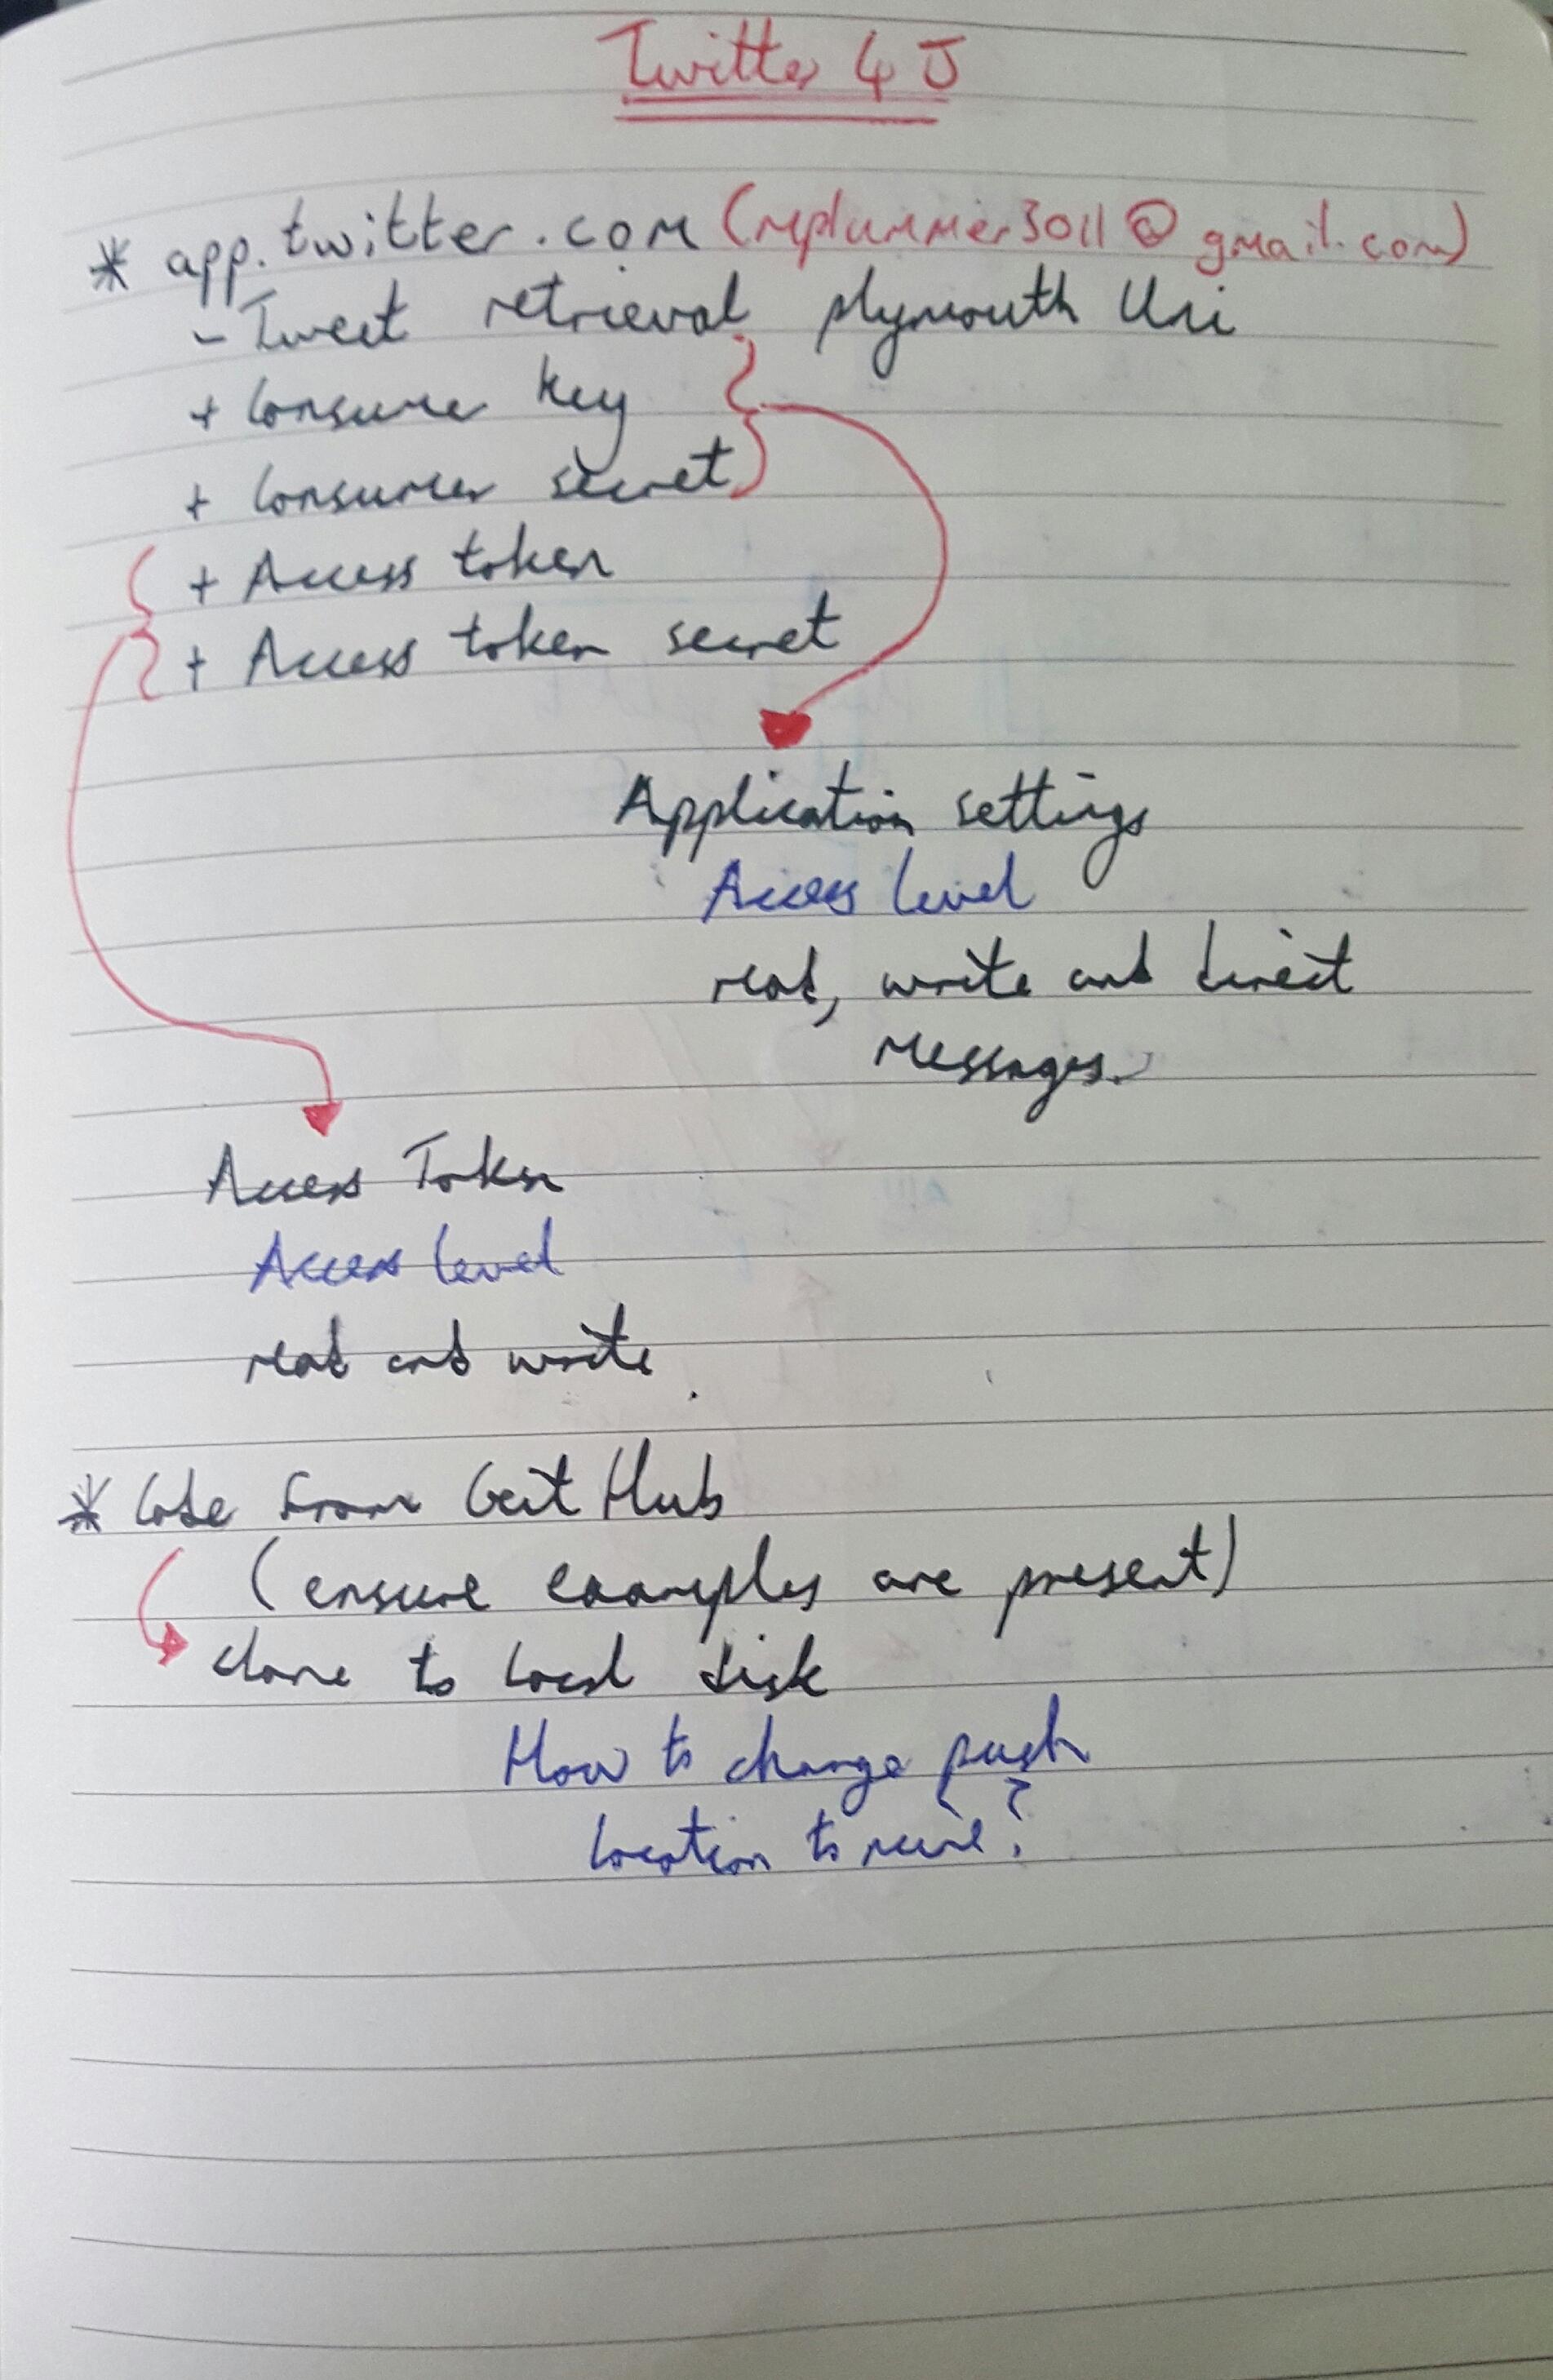 Twitter 4 J
* app.twitter.com (mplummer3011@gmail.com)
- Tweet retrieval plymouth Uni
+ Consumer key
+ Consumer secret
+ Access token
+ Access token secret
Application settings
Access level
read, write and direct
messages.
Access Token
Access level
read and write.
* Code from GitHub
(ensure examples are present)
clone to local disk
How to change push
location to mine?